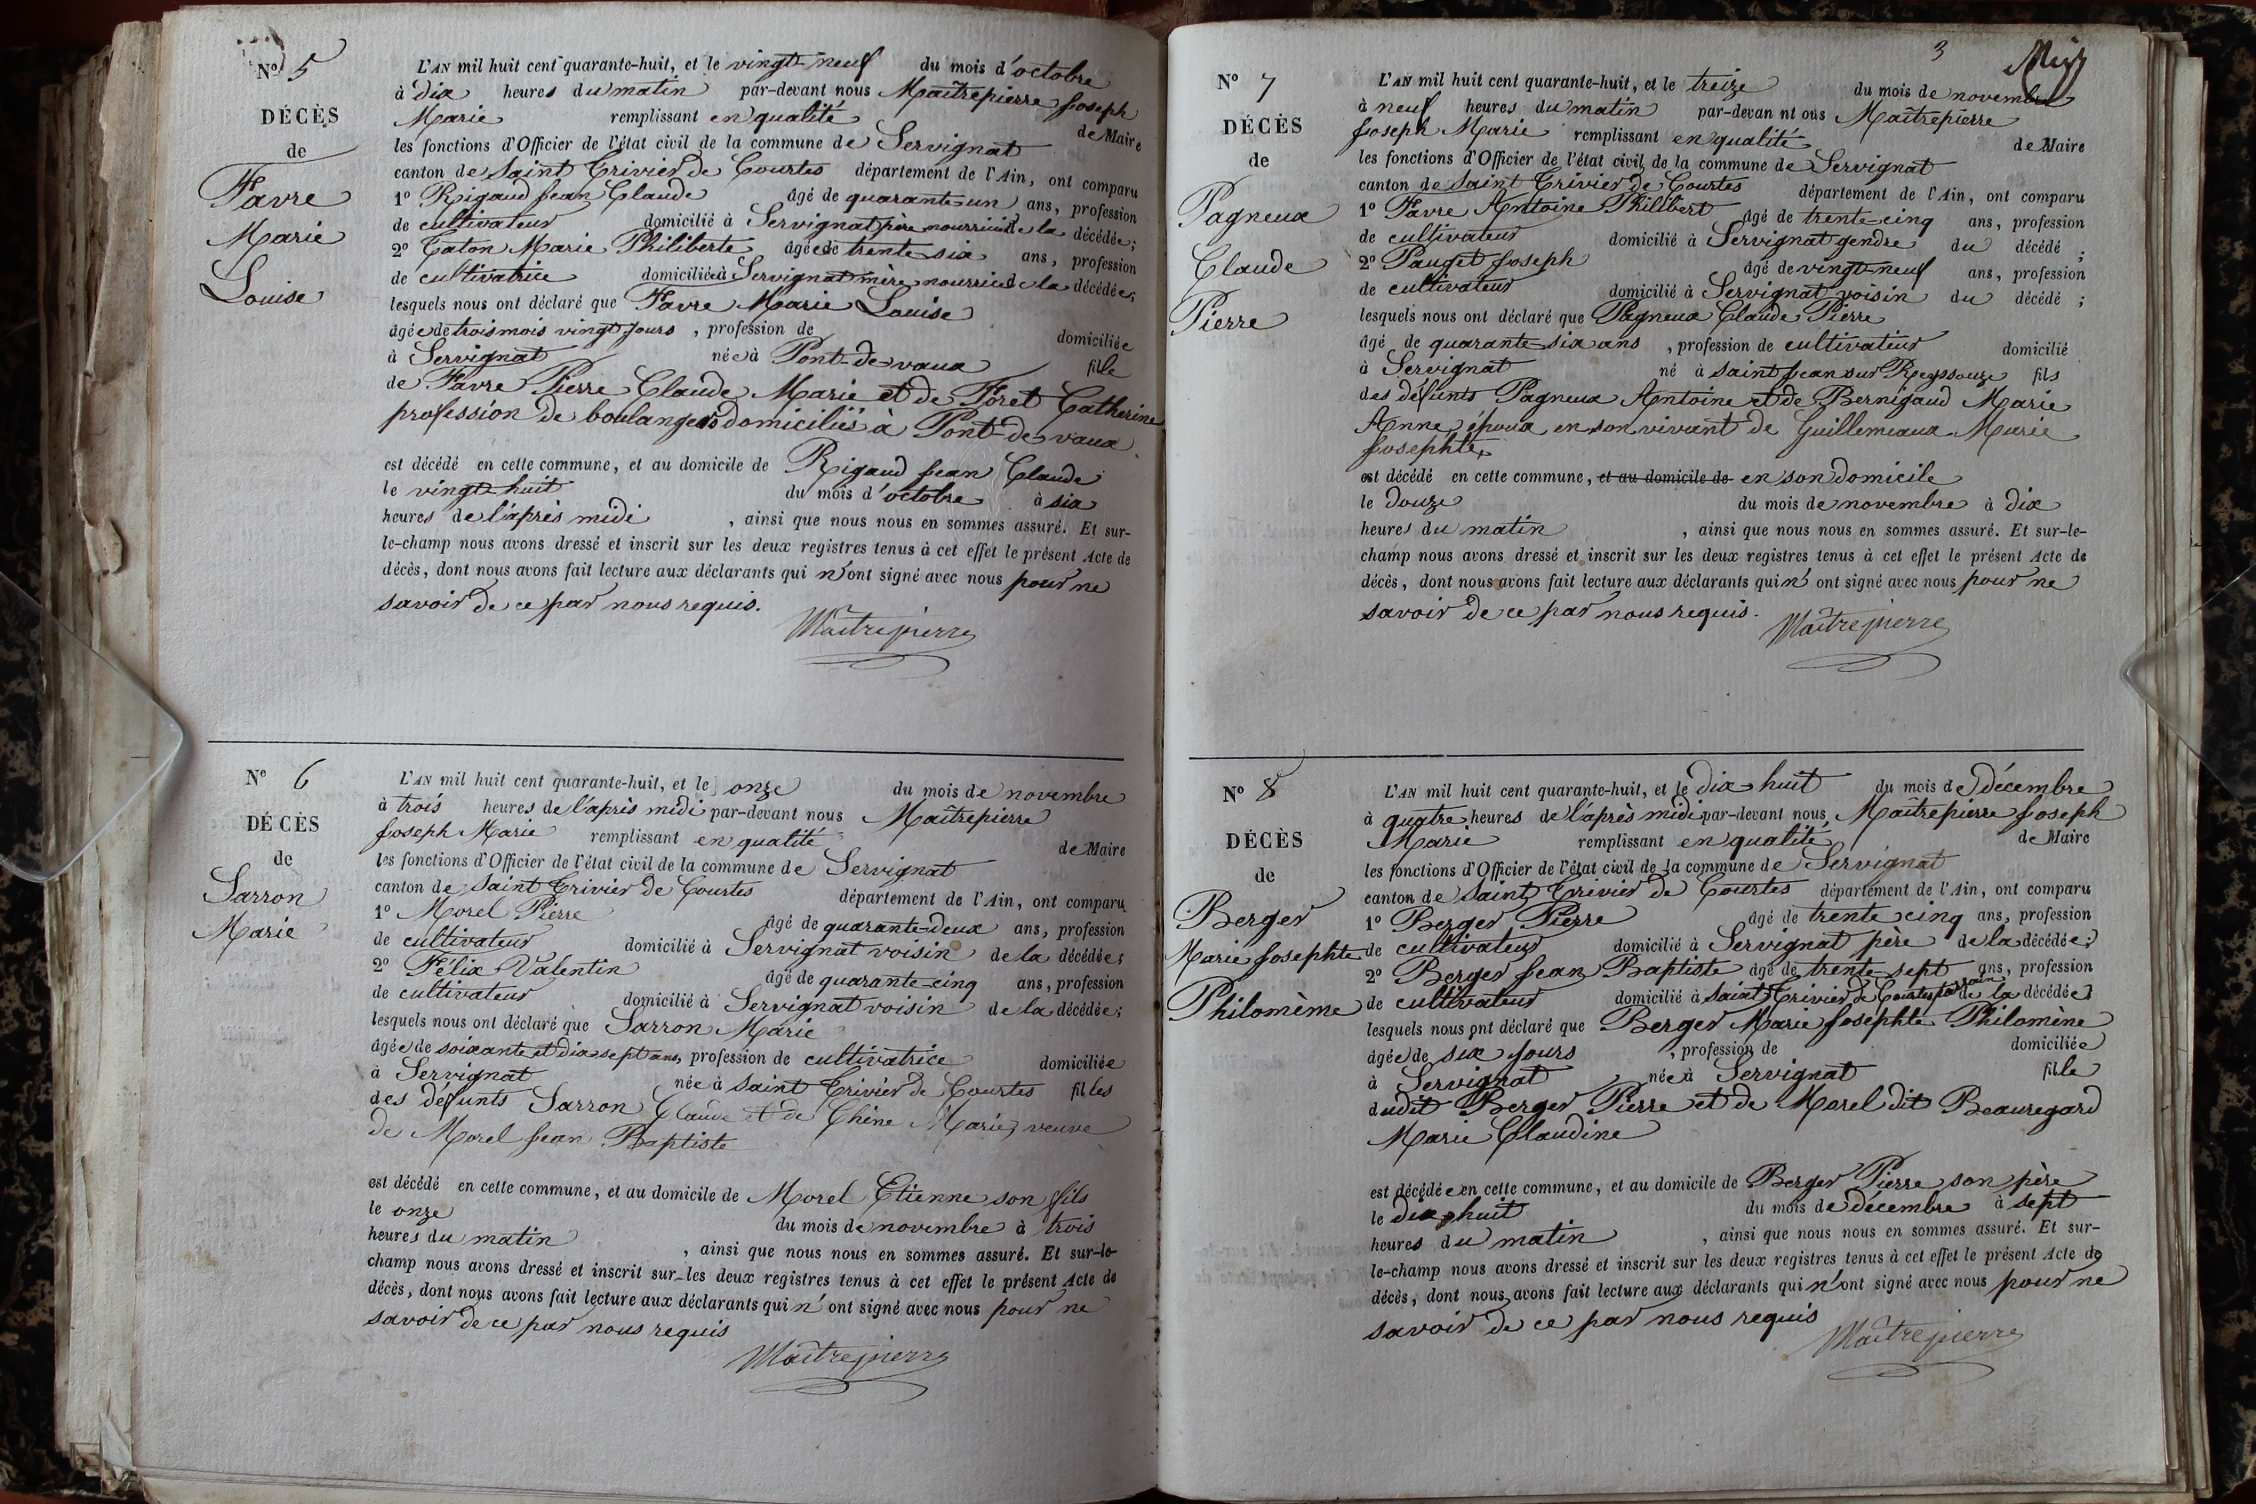 N° 5
DÉCÈS
de
Favre
Marie
Louise
L'AN mil huit cent quarante-huit, et le vingt-neuf du mois d'octobre
à dix heures du matin par-devant nous Maîtrepierre Joseph
Marie remplissant en qualité de Maire
les fonctions d'Officier de l'état civil de la commune de Servignat
canton de Saint Trivier de Courtes département de l'Ain, ont comparu
1° Rigaud Jean Claude âgé de quarante-un ans, profession
de cultivateur domicilié à Servignat père nourricier de la décédée;
2° Caton Marie Philiberte âgée de trente six ans, profession
de cultivatrice domiciliée à Servignat mère nourrice de la décédée;
lesquels nous ont déclaré que Favre Marie Louise
âgée de trois mois vingt jours, profession de domiciliée
à Servignat née à Pont-de-vaux fille
de Favre Pierre Claude Marie et de Foret Catherine
profession de boulangers domiciliés à Pont-de-vaux
est décédé en cette commune, et au domicile de Rigaud Jean Claude
le vingt-huit du mois d'octobre à six
heures de l'après midi, ainsi que nous nous en sommes assuré. Et sur-
le-champ nous avons dressé et inscrit sur les deux registres tenus à cet effet le présent Acte de
décès, dont nous avons fait lecture aux déclarants qui n'ont signé avec nous pour ne
savoir de ce par nous requis.
Maîtrepierre
N° 6
DÉCÈS
de
Sarron
Marie
L'AN mil huit cent quarante-huit, et le onze du mois de novembre
à trois heures de l'après midi par-devant nous Maîtrepierre
Joseph Marie remplissant en qualité de Maire
les fonctions d'Officier de l'état civil de la commune de Servignat
canton de Saint Trivier de Courtes département de l'Ain, ont comparu
1° Morel Pierre âgé de quarante-deux ans, profession
de cultivateur domicilié à Servignat voisin de la décédée;
2° Félix Valentin âgé de quarante-cinq ans, profession
de cultivateur domicilié à Servignat voisin de la décédée;
lesquels nous ont déclaré que Sarron Marie
âgée de soixante et dix sept ans, profession de cultivatrice domiciliée
à Servignat née à Saint Trivier de Courtes filles
des défunts Sarron Claude et de Chêne Marie, veuve
de Morel Jean Baptiste
est décédé en cette commune, et au domicile de Morel Etienne son fils
le onze du mois de novembre à trois
heures du matin, ainsi que nous nous en sommes assuré. Et sur-le-
champ nous avons dressé et inscrit sur les deux registres tenus à cet effet le présent Acte de
décès, dont nous avons fait lecture aux déclarants qui n'ont signé avec nous pour ne
savoir de ce par nous requis
Maîtrepierre
3
N° 7
DÉCÈS
de
Pagneux
Claude
Pierre
L'AN mil huit cent quarante-huit, et le treize du mois de novembre
à neuf heures du matin par-devan nt ous Maîtrepierre
Joseph Marie remplissant en qualité de Maire
les fonctions d'Officier de l'état civil de la commune de Servignat
canton de Saint Trivier de Courtes département de l'Ain, ont comparu
1° Favre Antoine Philibert âgé de trente-cinq ans, profession
de cultivateur domicilié à Servignat gendre du décédé;
2° Pauget Joseph âgé de vingt-neuf ans, profession
de cultivateur domicilié à Servignat voisin du décédé;
lesquels nous ont déclaré que Pagneux Claude Pierre
âgé de quarante-six ans, profession de cultivateur domicilié
à Servignat né à Saint Jean sur Reyssouze fils
des défunts Pagneux Antoine et de Bernigaud Marie
Anne, époux en son vivant de Guillemeaux Marie
Josephte,
est décédé en cette commune, et au domicile de en son domicile
le douze du mois de novembre à dix
heures du matin, ainsi que nous nous en sommes assuré. Et sur-le-
champ nous avons dressé et inscrit sur les deux registres tenus à cet effet le présent Acte de
décès, dont nous avons fait lecture aux déclarants qui n'ont signé avec nous pour ne
savoir de ce par nous requis.
Maîtrepierre
N° 8
DÉCÈS
de
Berger
Marie Josephte
Philomème
L'AN mil huit cent quarante-huit, et le dix huit du mois de décembre
à quatre heures de l'après midi par-devant nous Maîtrepierre Joseph
Marie remplissant en qualité de Maire
les fonctions d'Officier de l'état civil de la commune de Servignat
canton de Saint Trivier de Courtes département de l'Ain, ont comparu
1° Berger Pierre âgé de trente cinq ans, profession
de cultivateur domicilié à Servignat père de la décédée;
2° Berger Jean Baptiste âgé de trente sept ans, profession
de cultivateur domicilié à Saint Trivier de Courtes parrain de la décédée;
lesquels nous ont déclaré que Berger Marie Josephte Philomène
âgée de six jours, profession de domiciliée
à Servignat née à Servignat fille
dudit Berger Pierre et de Morel dit Beauregard
Marie Claudine
est décédée en cette commune, et au domicile de Berger Pierre son père
le dix huit du mois de décembre à sept
heures du matin, ainsi que nous nous en sommes assuré. Et sur-
le-champ nous avons dressé et inscrit sur les deux registres tenus à cet effet le présent Acte de
décès, dont nous avons fait lecture aux déclarants qui n'ont signé avec nous pour ne
savoir de ce par nous requis
Maîtrepierre